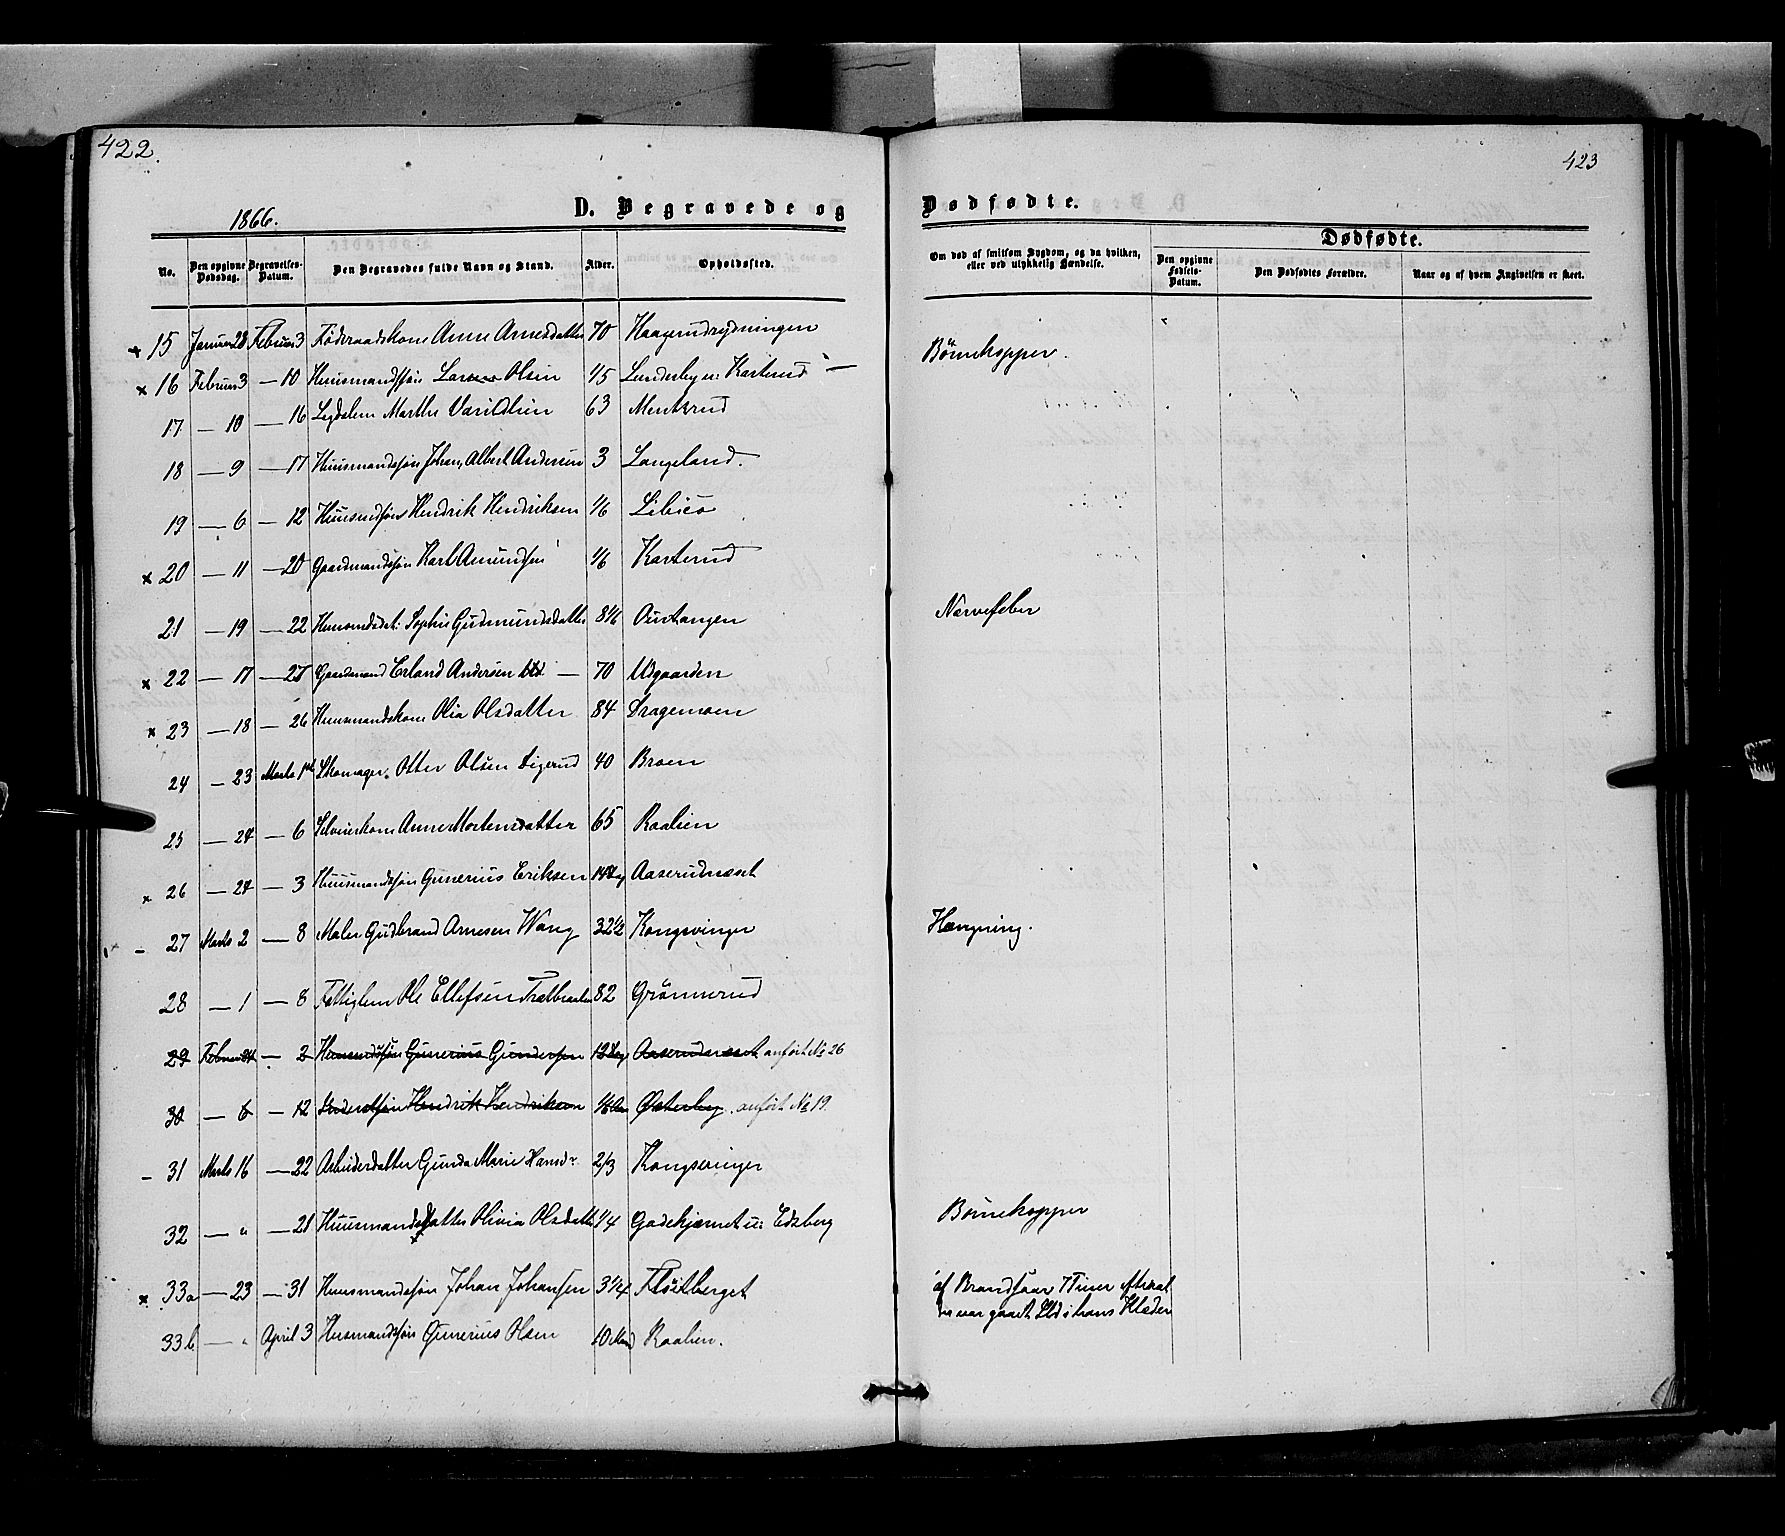 422.
423
1866.
D. Begravede og
Dødfødte.
No.
Den opgivne Dødsdag.
Begravelses-Datum.
Den Begravedes fulde Navn og Stand.
Alder.
Opholdssted.
Om død af smitsom Sygdom, og da hvilken, eller ved ulykkelig Hændelse.
Dødfødte.
Den opgivne Fødsels-Datum.
Den Dødfødtes Forældre.
Naar og af hvem Angivelsen er skeet.
15 Januar 28 Februar 3 Føderaadskone Anne Arnesdatter 70 Haagerudrydningen
x 16 Februar 3 — 10 Huusmandssøn Olsen 1/5 Lundeby u: Karterud — Børnekopper.
17 — 10 — 16 Legdslem Marthe 63 Mentsrud
18 — 9 — 17 Huusmandssøn Johan Albert Andersen 3 Langeland.
19 — 6 — 12 Huusmdssøn Hendrik Hendriksen 1/6
x 20 — 11 — 20 Gaardmandssøn Karl Amundsen 1/6 Karterud
21 — 19 — 22 Huusmdsdt: Sophie Gudmundsdatter 8 1/6 Ourtangen Nervefeber
x 22 — 17 — 27 Gaardmand Erland Andersen — 70 Udgaarden
x 23 — 18 — 26 Huusmandskone Olia Olsdatter 84 Dragemoen
24 — 23 Marts 1ste Skomager Otter Olsen Digerud 40 Broen
25 — 24 — 6 Selveierkone Anne Mortensdatter 65 Raalien
x 26 — 24 — 3 Huusmandssøn Gunerius Eriksen 14 Dg Aaserudnæset
- 27 Marts 2 — 8 Maler Gudbrand Arnesen Wang 32 1/2 Kongsvinger Hængning.
28 — 1 — 8 Fattiglem Ole Ellefsen 82 Grønnerud
29 Februar 24 — 2 Huusmdssøn Gunerius Gundersen 12 Dg Aaserudnæset anført No 26
30 — 6 — 12 Hendrik Hendriksen 1/6 Aar Østerby. anført No 19.
- 31 Marts 16 — 22 Arbeiderdatter Gunda Marie Hansdr 2/3 Kongsvinger
32 — " — 21 Huusmandsdatter Olivia Olsdatter 1/4 Gadekjærnet u: Edsberg Børnekopper
x 33a — 23 — 31 Huusmandssøn Johan Johansen 3 1/4 Fløitberget af Brandsaar 7 Timer efterat
der var gaaet Ild i hans Klæder
33b — " April 3 Husmandssøn Gunerius Olsen 10 Mnd Raalien.